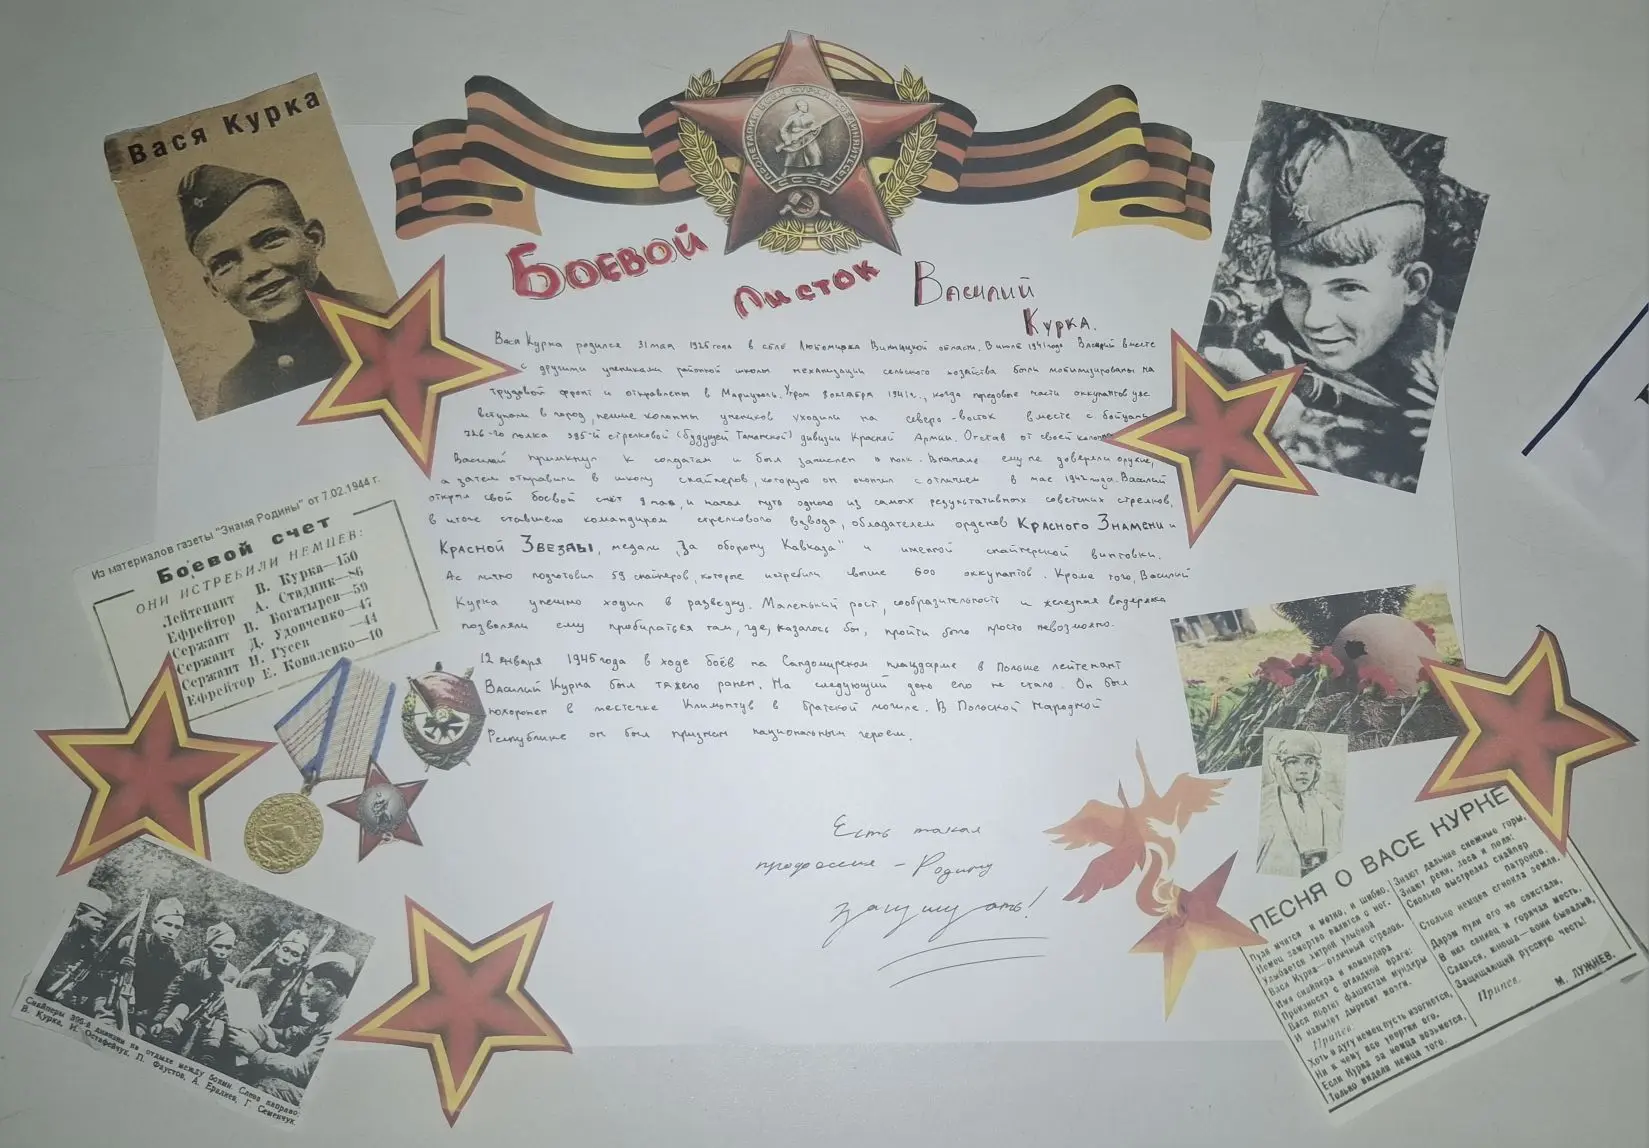 Вася Курка
ПРОЛЕТАРИИ ВСЕХ СТРАН, СОЕДИНЯЙТЕСЬ!
СССР
Боевой
Листок
Василий
Курка.
Вася Курка родился 31 мая 1925 года в селе Любомирка Виницкой области. В июле 1941 года Василий вместе
с другими учениками районной школы механизации сельского хозяйства были мобилизированы на
трудовой фронт и отправлены в Мариуполь. Утром 8 октября 1941 г., когда передовые части оккупантов уже
вступали в город, пешие колонны учеников уходили на северо-восток вместе с бойцами
726-го полка 395-й стрелковой (будущей Таманской) дивизии Красной Армии. Отстав от своей
Василий примкнул к солдатам и был записан в полк. Вначале ему не доверяли оружие,
а затем отправили в школу снайперов, которую он окончил с отличием в мае 1942 года. Василий
открыл свой боевой счёт 9 мая, и начал путь одного из самых результативных советских стрелков,
в итоге ставшего командиром стрелкового взвода, обладателем орденов Красного Знамени и
Красной Звезды, медали "За оборону Кавказа" и именной снайперской винтовки.
Ас лично подготовил 59 снайперов, которые истребили свыше 600 оккупантов. Кроме того, Василий
Курка успешно ходил в разведку. Маленький рост, сообразительность и железная выдержка
позволяли ему пробираться там, где, казалось бы, пройти было просто невозможно.
12 января 1945 года в ходе боёв на Сандомирском плацдарме в Польше лейтенант
Василий Курка был тяжело ранен. На следующий день его не стало. Он был
похоронен в местечке Климонтув в братской могиле. В Польской Народной
Республике он был признан национальным героем.
Есть такая
профессия - Родину
защищать!
Из материалов газеты "Знамя Родины" от 7.02.1944 г.
Боевой счет
ОНИ ИСТРЕБИЛИ НЕМЦЕВ:
Лейтенант В. Курка—150
Ефрейтор А. Стадник—86
Сержант В. Богатырев—59
Сержант Д. Удовченко—47
Сержант Н. Гусев —44
Ефрейтор Е. Коваленко—10
Снайперы 395-й дивизии на отдыхе между боями. Слева направо:
В. Курка, И. Остафейчук, П. Фаустов, А. Ераляев, Г. Семенчук.
ПЕСНЯ О ВАСЕ КУРКЕ
Пуля мчится и метко, и шибко,
Немец замертво валится с ног.
Улыбается хитрой улыбкой
Вася Курка—отличный стрелок.
Имя снайпера и командира
Произносят с оглядкой враги:
Вася портит фашистам мундиры
И навылет дырявит мозги.
Припев:
Хоть в дугу немец пусть изогнется,
Ни к чему все увертки его.
Если Курка за немца возьмется,
Только видели немца того.
Знают дальние снежные горы,
Знают реки, леса и поля:
Сколько выстрелил снайпер патронов,
Столько немцев сгноила земля.
Даром пули его не свистали,
В них свинец и горячая месть.
Славься, юноша—воин бывалый,
Защищающий русскую честь!
Припев.
М. ЛУЖНЕВ.